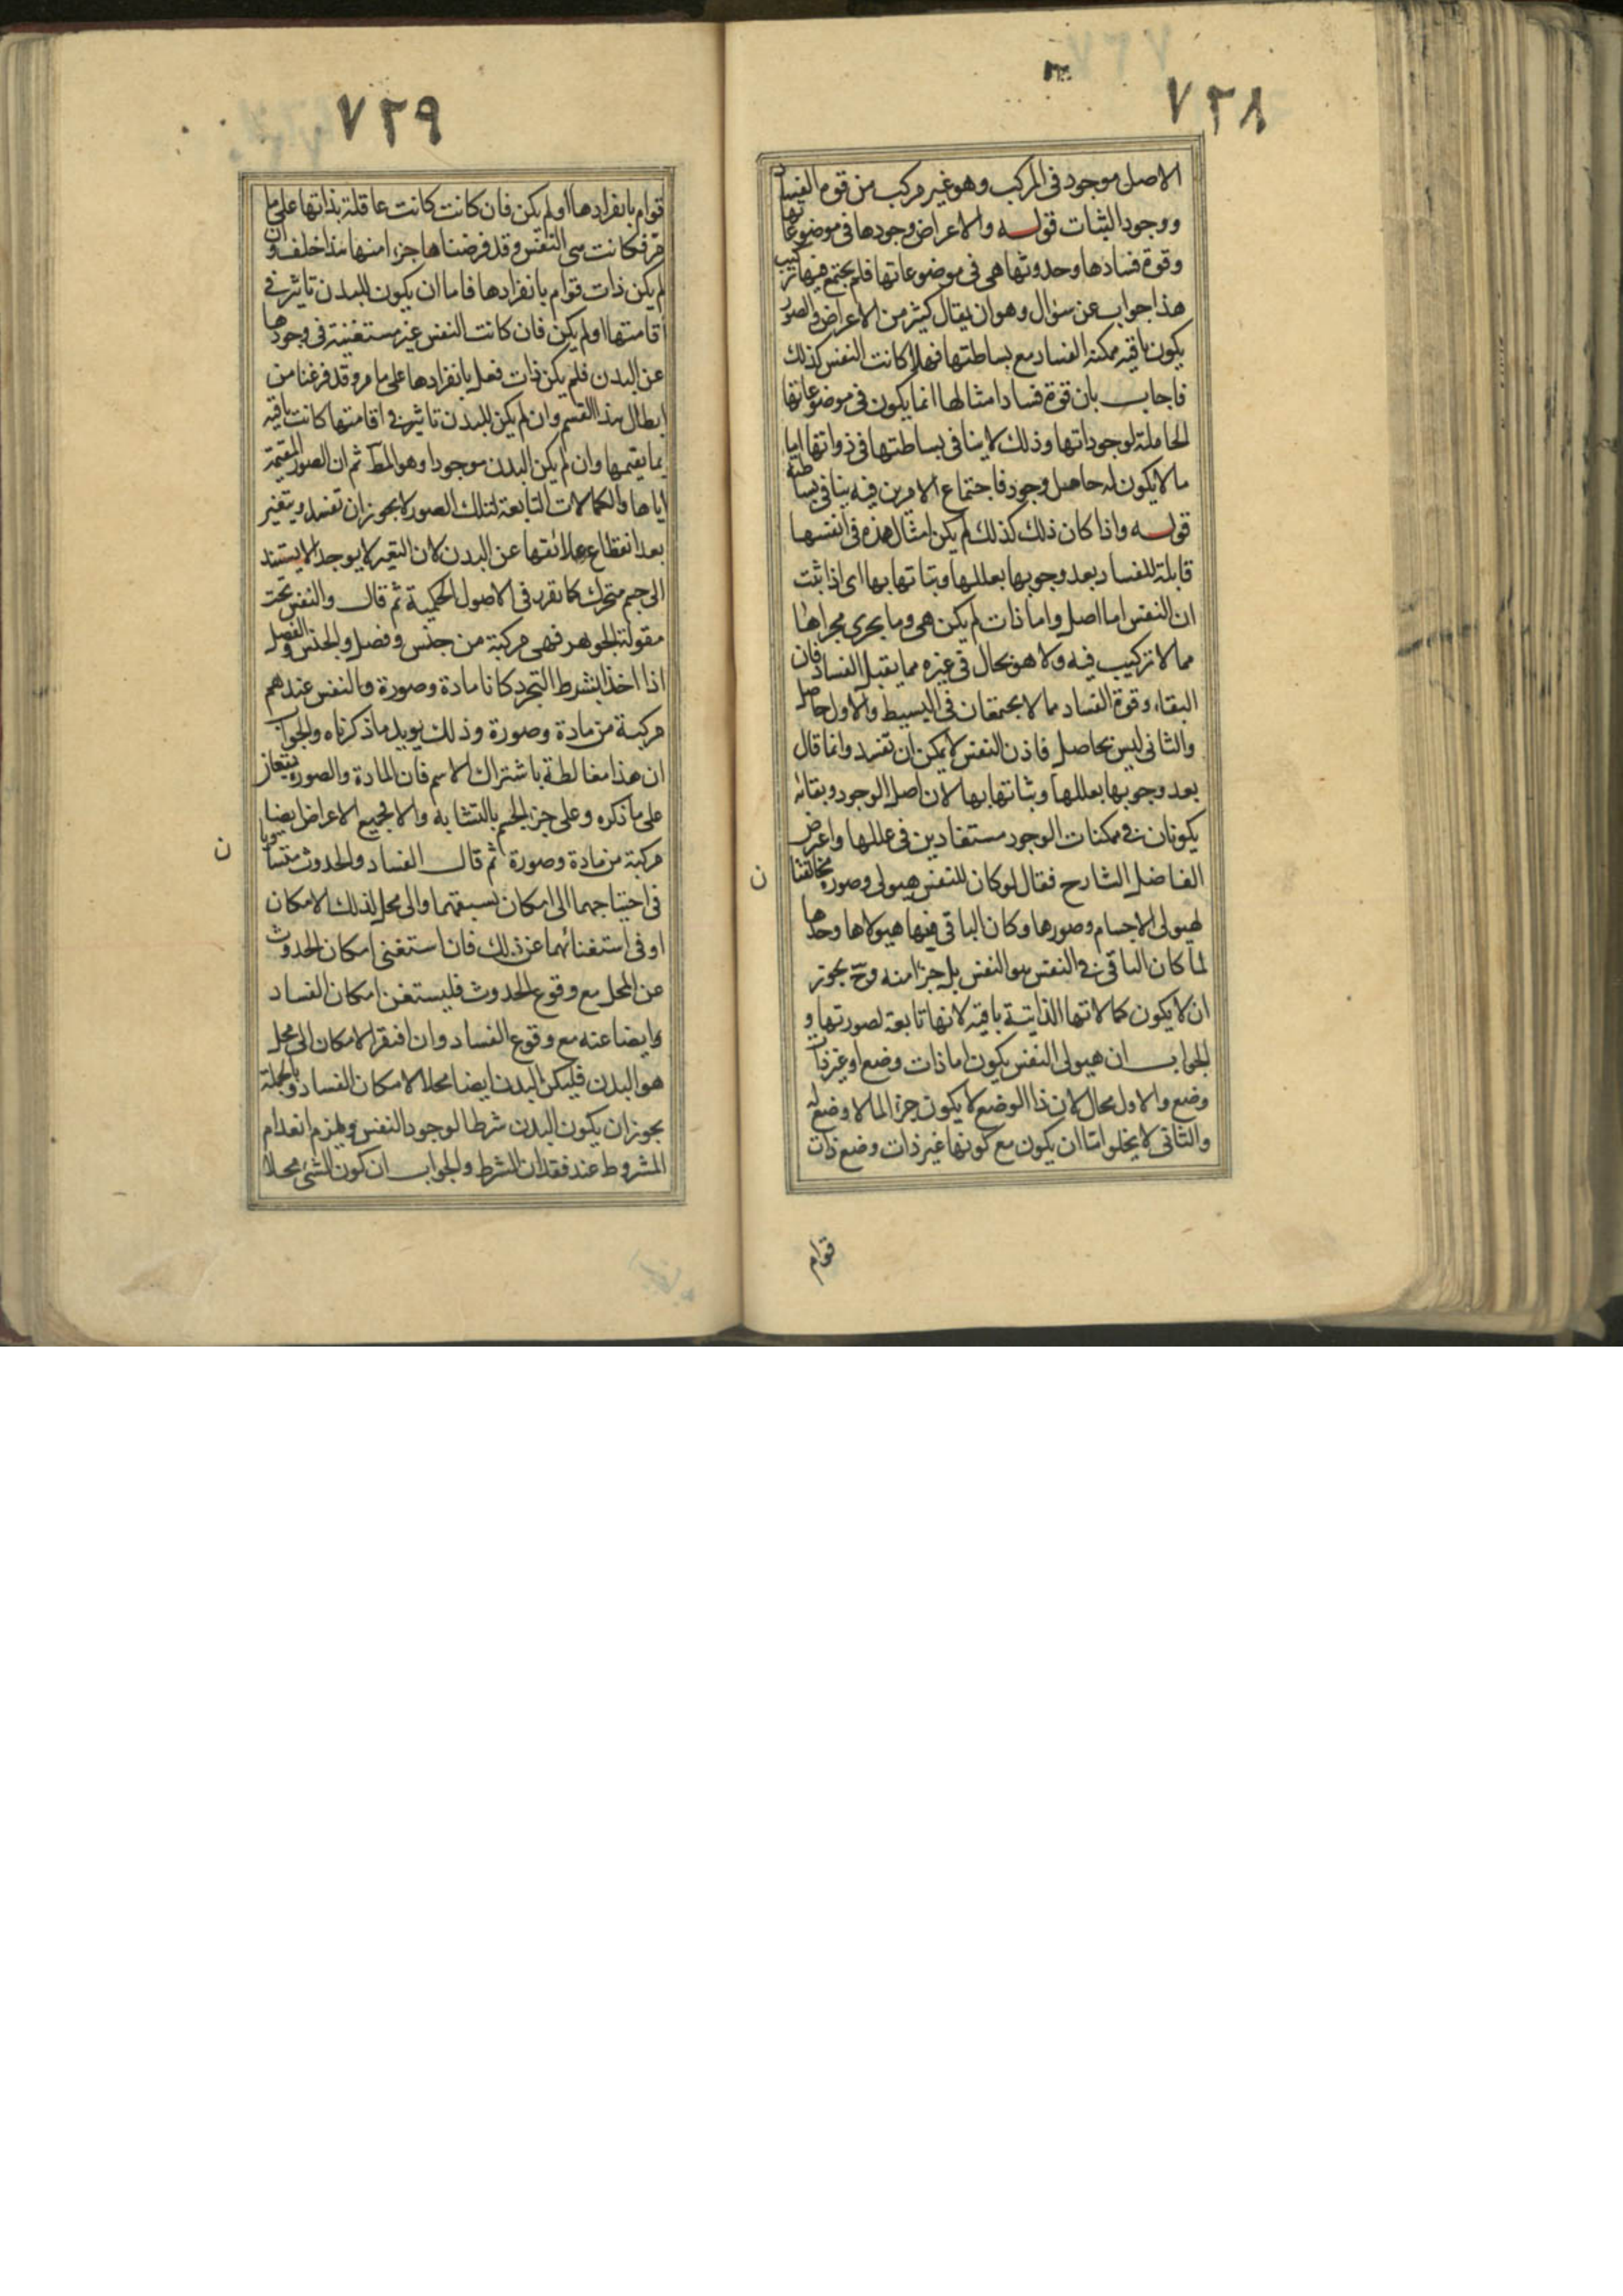 ٧٢٨
الاصل موجود فى المركب وهو غير مركب من قوة الفساد
ووجود الثبات قوله والاعراض وجودها فى موضوعاتها
وقوة فسادها وحدوثها هى فى موضوعاتها فلم يجتمع فيها تركيب
هذا جواب عن سؤال وهو ان يقال كثير من الاعراض والصور
يكون باقية ممكنة الفساد مع بساطتها فهلا كانت النفس كذلك
فاجاب بان قوة فساد امثالها انما يكون فى موضوعاتها
الحاملة لوجوداتها وذلك لا ينافى بساطتها فى ذواتها اما
ما لا يكون له حامل وجود فاجتماع الامرين فيه ينافى بساطته
قوله واذا كان ذلك كذلك لم يكن امثال هذه فى انفسها
قابلة للفساد بعد وجوبها بعللها وثباتها بها اى اذا ثبت
ان النفس اما اصل واما ذات لم يكن هى وما يجرى مجراها
مما لا تركيب فيه ولا هو بحال فى غيره مما يقبل الفساد فان
البقاء وقوة الفساد مما لا يجتمعان فى البسيط والاول حاصل
والثانى ليس بحاصل فاذن النفس لا يمكن ان تفسد وانما قال
بعد وجوبها بعللها وثباتها بها لان اصل الوجود وبقائه
يكونان فى ممكنات الوجود مستفادين فى عللها واعرض
الفاضل الشارح فقال لو كان للنفس هيولى وصورة مخالفتا
ن
لهيولى الاجسام وصورها وكان الباقى منها هيولاها وحدها
لما كان الباقى فى النفس هو النفس بل جزءا منه وح يجوز
ان لا يكون كمالاتها الذاتية باقية لانها تابعة لصورتها و
الجواب ان هيولى النفس يكون اما ذات وضع او غير ذات
وضع والاول محال لان ذا الوضع لا يكون جزءا لما لا وضع له
والثانى لا يخلو اما ان يكون مع كونها غير ذات وضع ذات
قوام
٧٢٩
قوام بانفرادها او لم يكن فان كانت كانت عاقلة بذاتها على ما
مر فكانت هى النفس وقد فرضناها جزءا منها هذا خلف وان
لم يكن ذات قوام بانفرادها فاما ان يكون للبدن تاثير فى
اقامتها او لم يكن فان كانت النفس غير مستغنية فى وجودها
عن البدن فلم يكن ذات فعل بانفرادها على ما مر وقد فرغنا من
ابطال هذا القسم وان لم يكن للبدن تاثير فى اقامتها كانت باقية
بما يقيمها وان لم يكن البدن موجودا وهو المط ثم ان الصور المقيمة
اياها والكمالات التابعة لتلك الصور لا يجوز ان تفسد ويتغير
بعد انقطاع علائقها عن البدن لان التغير لا يوجد الا يستند
الى جسم متحرك كما تقرر فى الاصول الحكمية ثم قال والنفس تحت
مقولة الجوهر فهى مركبة من جنس وفصل والجنس والفصل
اذا اخذا بشرط التجرد كانا مادة وصورة فالنفس عندهم
مركبة من مادة وصورة وذلك يويد ما ذكرناه والجواب
ان هذا مغالطة باشتراك الاسم فان المادة والصورة يقعان
على ما ذكره وعلى جزءى الجسم بالتشابه والا فجميع الاعراض ايضا
مركبة من مادة وصورة ثم قال الفساد والحدوث متساويان
ن
فى احتياجهما الى امكان يسبقهما والى محل لذلك الامكان
او فى استغنائهما عن ذلك فان استغنى امكان الحدوث
عن المحل مع وقوع الحدوث فليستغن امكان الفساد
ايضا عنه مع وقوع الفساد وان افتقر الامكان الى محل
هو البدن فليكن البدن ايضا محلا لامكان الفساد وبالجملة
يجوز ان يكون البدن شرطا لوجود النفس ويلزم انعدام
المشروط عند فقدان الشرط والجواب ان كون الشئ محلا